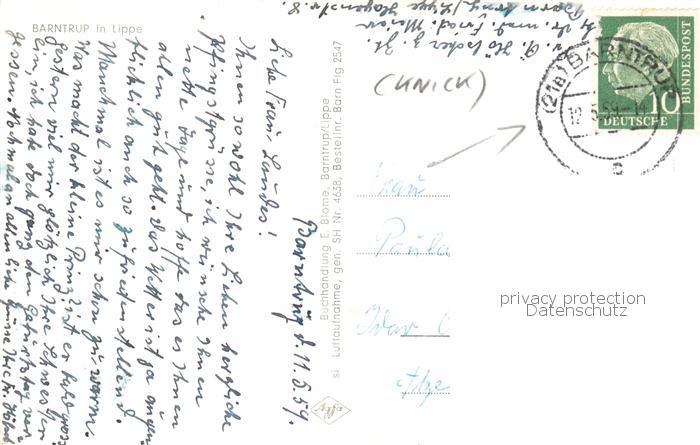 BARNTRUP in Lippe
Barntrup d. 11.5.59.
Liebe Frau Landes!
Ihnen sowohl Ihre Lieben herzliche
Pfingstgrüsse, ich wünsche Ihnen
nette Tage und hoffe das es Ihnen
allen gut geht. das Wetter ist ja augen-
blicklich auch so zufriedenstellend.
Manchmal ist es mir schon zu warm.
Was macht der kleine Prinz, ist er bald gross
gestern viel mir plötzlich Ihre Schwester
ein, ich habe doch ganz den Geburtstag ver-
gessen. Nochmals allen liebe Grüsse Ihre Fr.
Buchhandlung E. Blome, Barntrup/Lippe
si Luftaufnahme, gen. SH Nr. 4658, Bestellnr. Barn Flg 2547
z. Zt.
Dr. med. Fried. Meier
Barntrup/Lippe
(KNICK)
(21a) BARNTRUP
12.5.59
DEUTSCHE
BUNDESPOST
10
Frau
Paula
Idar
privacy protection
Datenschutz